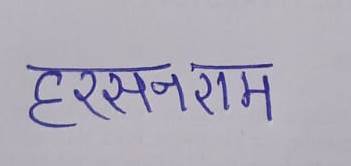 हरसनराम